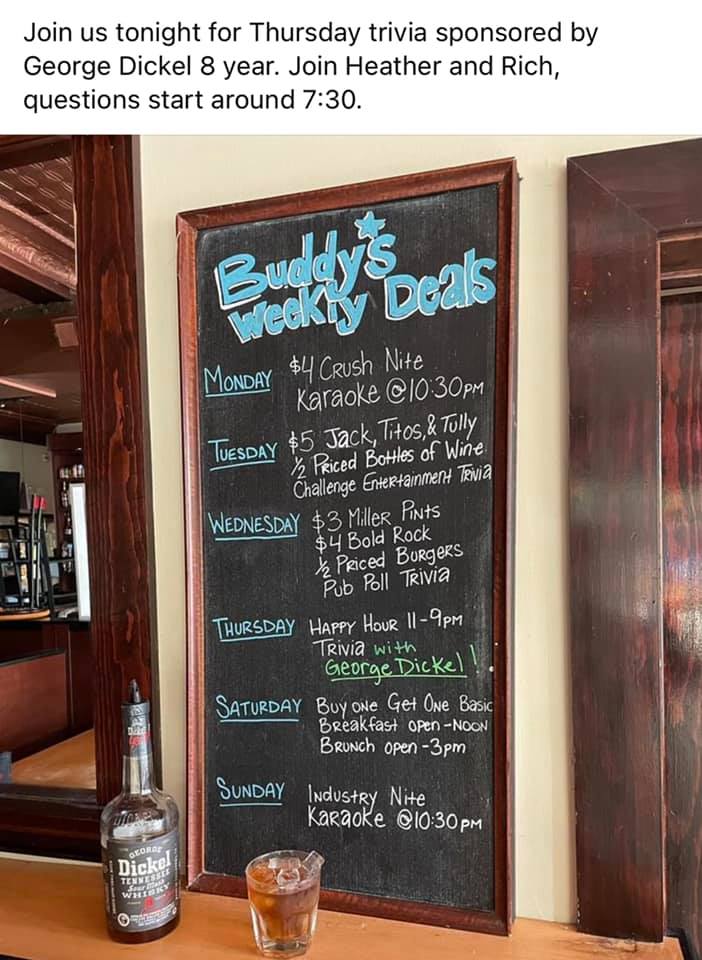 Join us tonight for Thursday trivia sponsored by
George Dickel 8 year. Join Heather and Rich,
questions start around 7:30.
Buddy's
Weekly Deals
Monday $4 Crush Nite
Karaoke @10:30pm
Tuesday $5 Jack, Titos, & Tully
1/2 Priced Bottles of Wine
Challenge Entertainment Trivia
Wednesday $3 Miller Pints
$4 Bold Rock
1/2 Priced Burgers
Pub Poll Trivia
Thursday Happy Hour 11-9pm
Trivia with
George Dickel!
Saturday Buy one Get One Basic
Breakfast open-Noon
Brunch open-3pm
Sunday Industry Nite
Karaoke @10:30pm
GEORGE
Dickel
TENNESSEE
Sour Mash
WHISKY
8